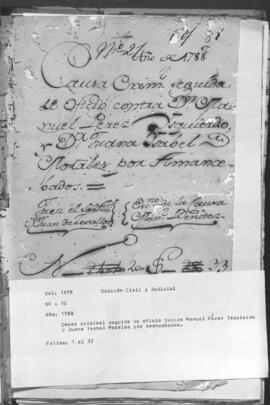 Nº 2 Año de 1788
Causa Crim.l seguida
de Oficio contra Dn. Ma-
nuel Perez Ysquierdo,
y Da. Juana Ysabel
Morales por Amance-
bados. =
Juez el
Juan de Zevallos
Esno. de la Causa
Benitez
33
Vol: 1679 Sección Civil y Judicial
Nº : 10
Año: 1788
Causa criminal seguida de oficio contra Manuel Pérez Izquierdo
y Juana Ysabel Morales por amancebados.
Folios: 1 al 33